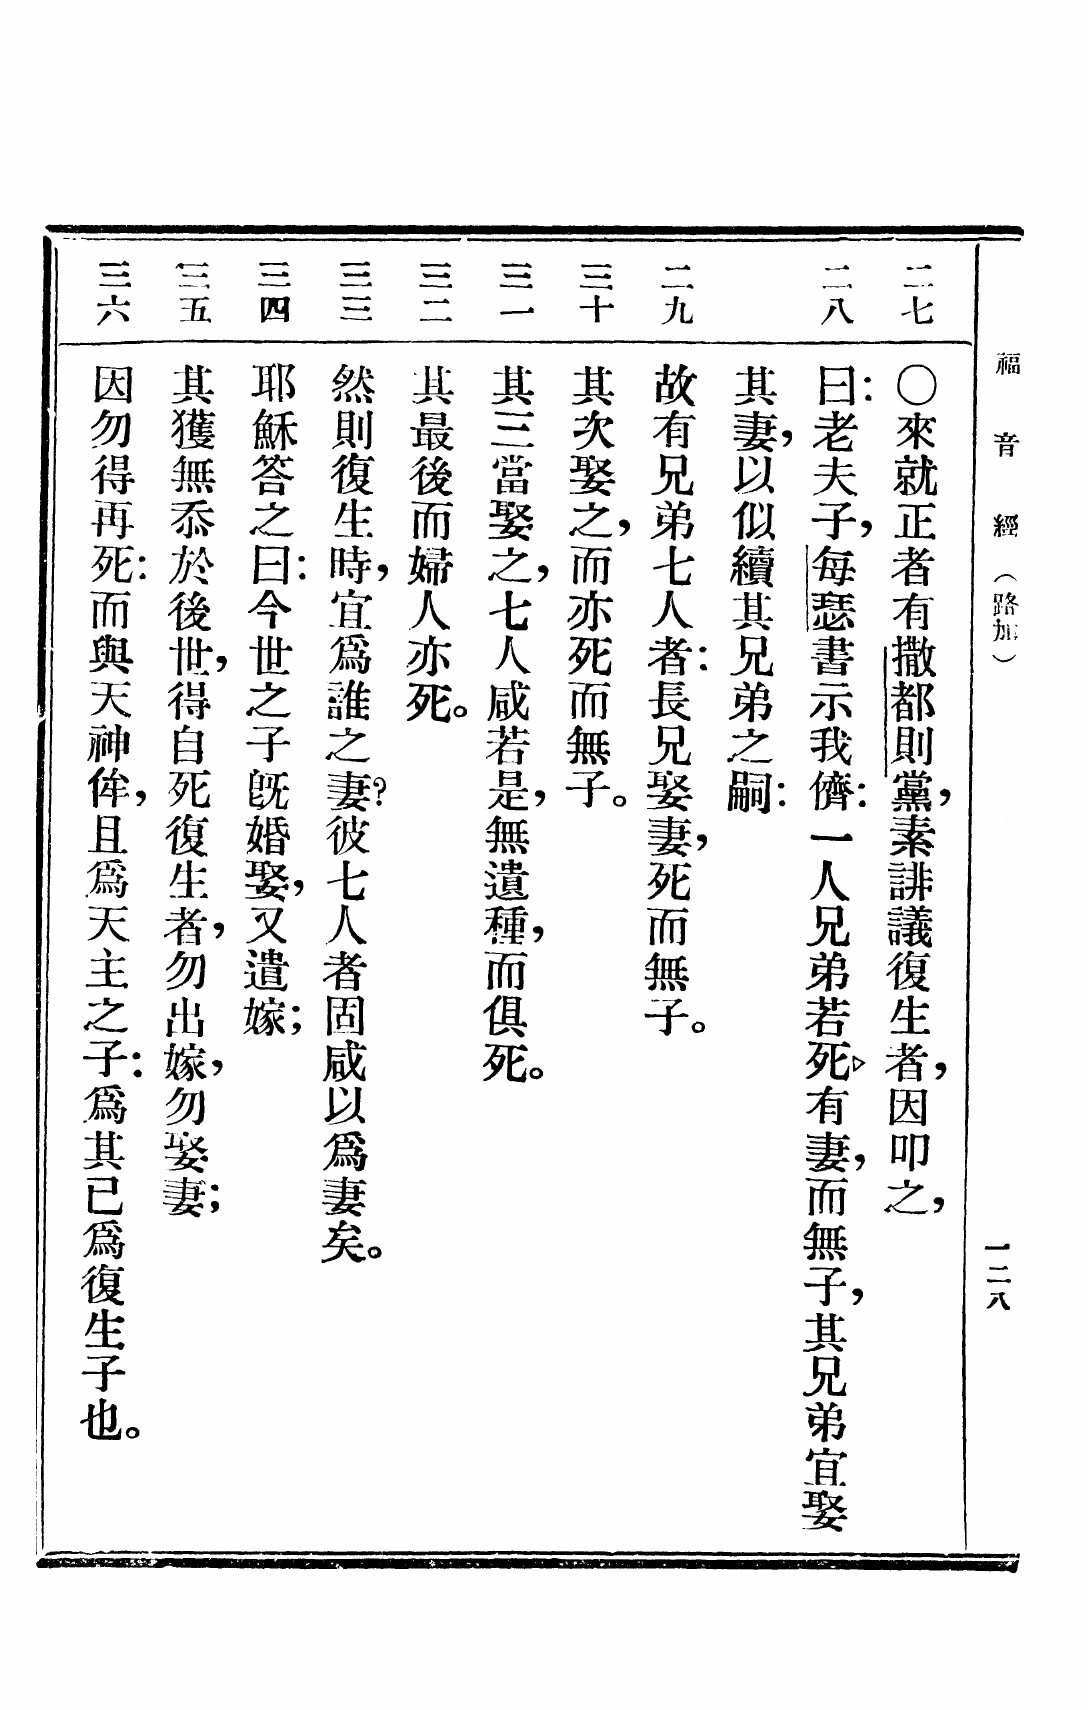 福音經（路加）
一二八
二七
〇來就正者有撒都則黨，素誹議復生者，因叩之，
二八
曰：老夫子，每瑟書示我儕：一人兄弟若死，有妻，而無子，其兄弟宜娶
其妻，以似續其兄弟之嗣：
二九
故有兄弟七人者：長兄娶妻，死而無子。
三十
其次娶之，而亦死而無子。
三一
其三當娶之，七人咸若是，無遺種，而俱死。
三二
其最後而婦人亦死。
三三
然則復生時，宜爲誰之妻？彼七人者固咸以爲妻矣。
三四
耶穌答之曰：今世之子旣婚娶，又遣嫁；
三五
其獲無忝於後世，得自死復生者，勿出嫁，勿娶妻；
三六
因勿得再死：而與天神侔，且爲天主之子：爲其已爲復生子也。